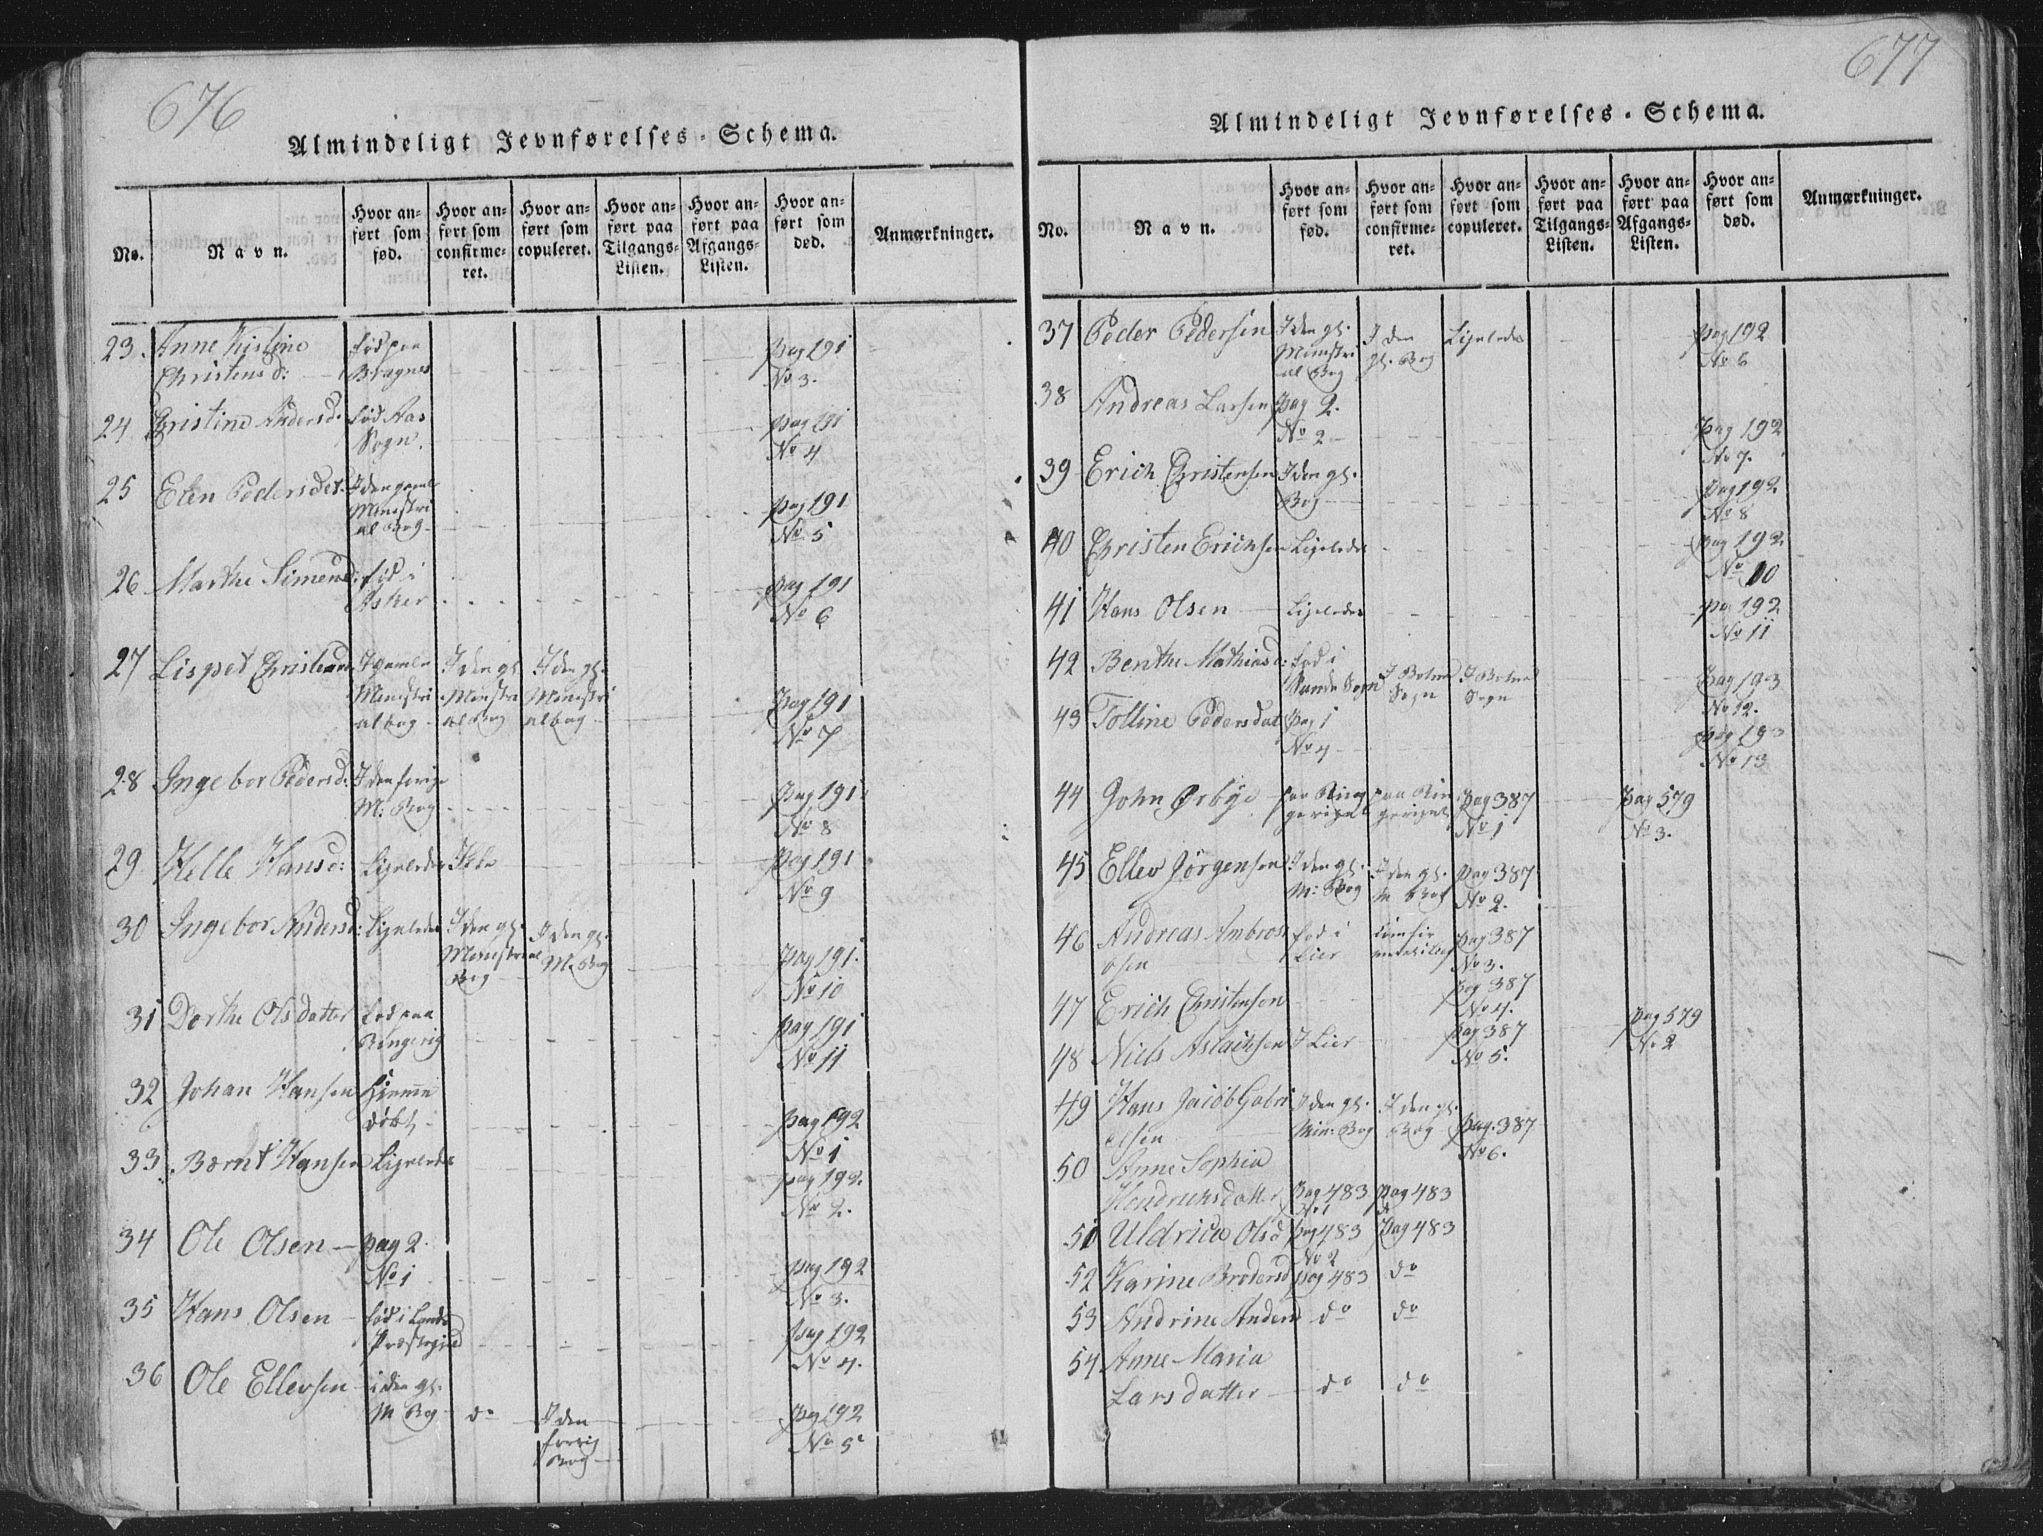 676
Almindeligt Jevnførelses-Schema.
No. Navn. Hvor anført som fød. Hvor anført som confirmeret. Hvor anført som copuleret. Hvor anført paa Tilgangs-Listen. Hvor anført paa Afgangs-Listen. Hvor anført som død. Anmærkninger.
23. Anne Kistine fød paa Pag 191
Christensd: Bragnes No 3.
24 Christine Andersd. fød Aas pag 191
Sogn. No 4
25 Elen Pedersdet. I den gamle Pag 191
Ministri No 5
al Bog
26 Marthe Simensd: fød i Pag 191
Asker No 6
27 Lispet Christensd I gamle I den gl. I den gl.
Ministri Ministri Ministri Pag 191
albog al Bog albog No 7
28 Ingebor Pedersd. I den forige Pag 191
M. Bog No 8
29 Helle Hansd: Ligeledes Pag 191
No 9
30 Ingebor Andersd: Ligeledes I den gl. I den gl.
Ministrial M. Bog Pag 191.
Bog No 10
31 Dorthe Olsdatter fød paa Pag 191
Ringerig No 11
32 Johan Hansen Hiemme
døbt Pag 192
No 1
33. Bernt Hansen Ligeledes pag 192.
No 2.
34 Ole Olsen Pag 2.
No 1 Pag 192
No 3.
35 Hans Olsen fød i Lands
Præstegield Pag 192
No 4.
36 Ole Ellevsen i den gl.
M Bog do I den Pag 192
forrig No 5
Bog
677
Almindeligt Jevnførelses-Schema.
No. Navn. Hvor anført som fød. Hvor anført som confirmeret. Hvor anført som copuleret. Hvor anført paa Tilgangs-Listen. Hvor anført paa Afgangs-Listen. Hvor anført som død. Anmærkninger.
37 Peder Pedersen I den gl. I den Ligeledes Pag 192
Ministri gl. Bog No 6
al Bog
38 Andreas Larsen Pag 2. Pag 192
No 2 No 7.
39 Erich Christensen I den gl. Pag 192
Bog No 8
40 Christen Erichsen Ligeledes Pag 192
No 10
41 Hans Olsen Ligeledes pag 192
No 11
42 Benthe Mathiasd: fød i Pag 193
Sande Sogn Sogn Sogn No 12.
43 Tolline Pedersdat Pag 1 pag 193
No 4 No 13
44 John Ørbye paa Ring paa Rin Pag 387 Pag 579
gerige gerige No 1 No 3.
45 Ellev Jörgensen I den gl. I den gl. Pag 387
M: Bog M Bog No 2.
46 Andreas Ambros fød i Pag 387
osen Lier No 3.
47 Erich Christensen pag 387
No 4.
48 Niels Aslachsen I Lier Pag 387 Pag 579
No 5. No 2
49 Hans Jacob Gabri I den gl. I den gl.
elsen Min: Bog Bog Pag. 387
No 6.
50 Anne Sophia
Hendrichsdatter Pag 483 Pag 483
No 1
51 Uldricæ Olsd Pag 483 Pag 483
No 2
52 Karine Brodersd pag 483 do
53 Andrine Anders do do
54 Anne Maria
Larsdatter do do